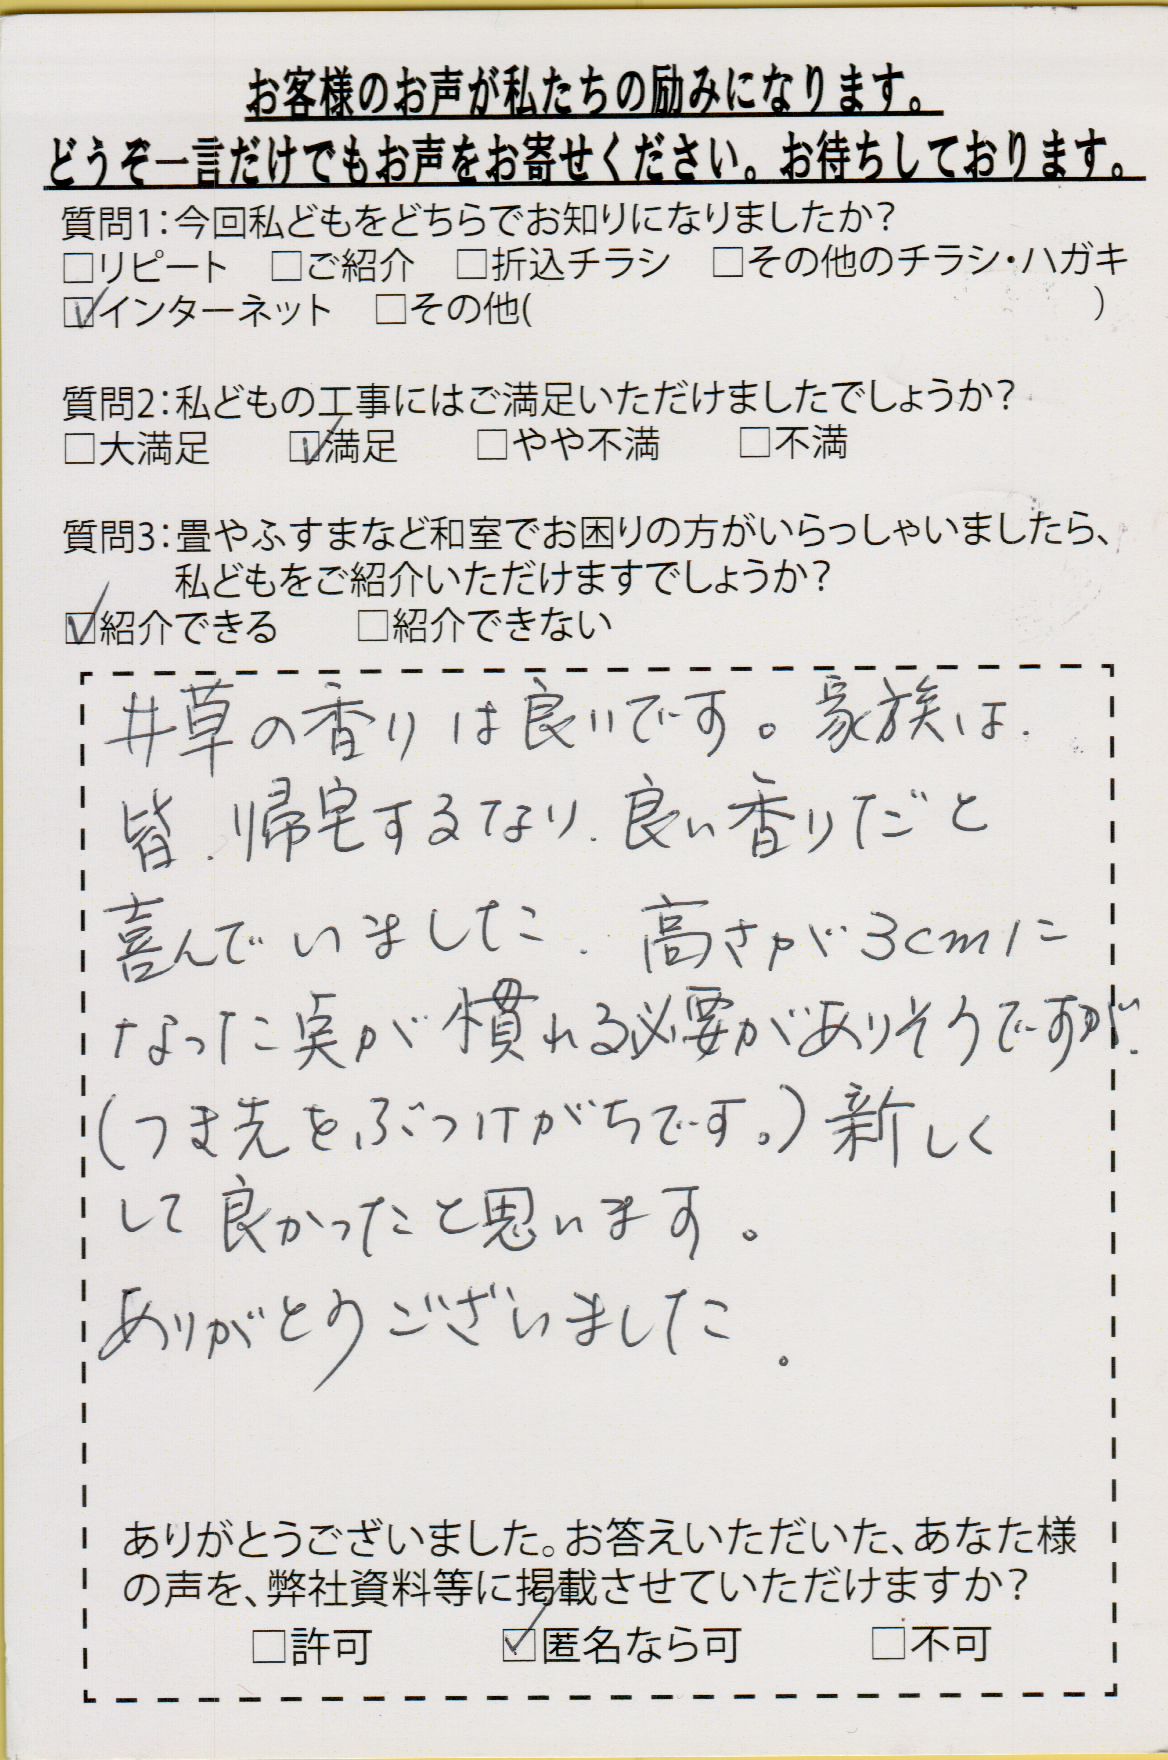 お客様のお声が私たちの励みになります。
どうぞ一言だけでもお声をお寄せください。お待ちしております。
質問1:今回私どもをどちらでお知りになりましたか?
□リピート □ご紹介 □折込チラシ □その他のチラシ・ハガキ
☑インターネット □その他( )
質問2:私どもの工事にはご満足いただけましたでしょうか?
□大満足 ☑満足 □やや不満 □不満
質問3:畳やふすまなど和室でお困りの方がいらっしゃいましたら、
私どもをご紹介いただけますでしょうか?
☑紹介できる □紹介できない
井草の香りは良いです。家族は、
皆、帰宅するなり、良い香りだと
喜んでいました。高さが3cmに
なった実が慣れる必要がありそうですが、
(つま先をぶつけがちです。)新しく
して良かったと思います。
ありがとうございました。
ありがとうございました。お答えいただいた、あなた様
の声を、弊社資料等に掲載させていただけますか?
□許可 ☑匿名なら可 □不可